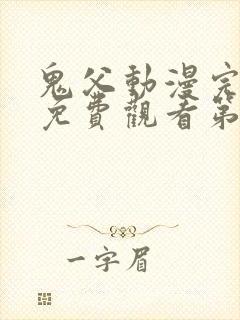 鬼父動漫完
免費觀看第
一字眉